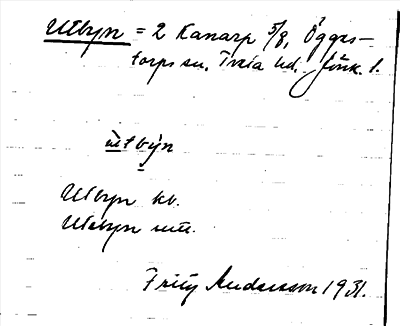 Utbyn = 2 Kanarp 5/8, Öggestorps sn, Tveta hd. Jönk. l.
ùtby̱n
Utbyn kb.
Utebyn uu.
Fritz Andersson 1931.